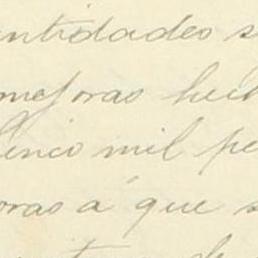 antidades s
mejoras hech
cinco mil pe
oras a que s